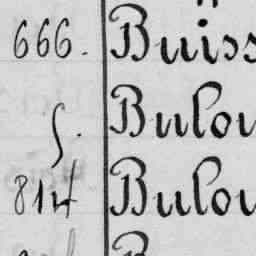 666. Buiss
5. Bulou
814 Bulou